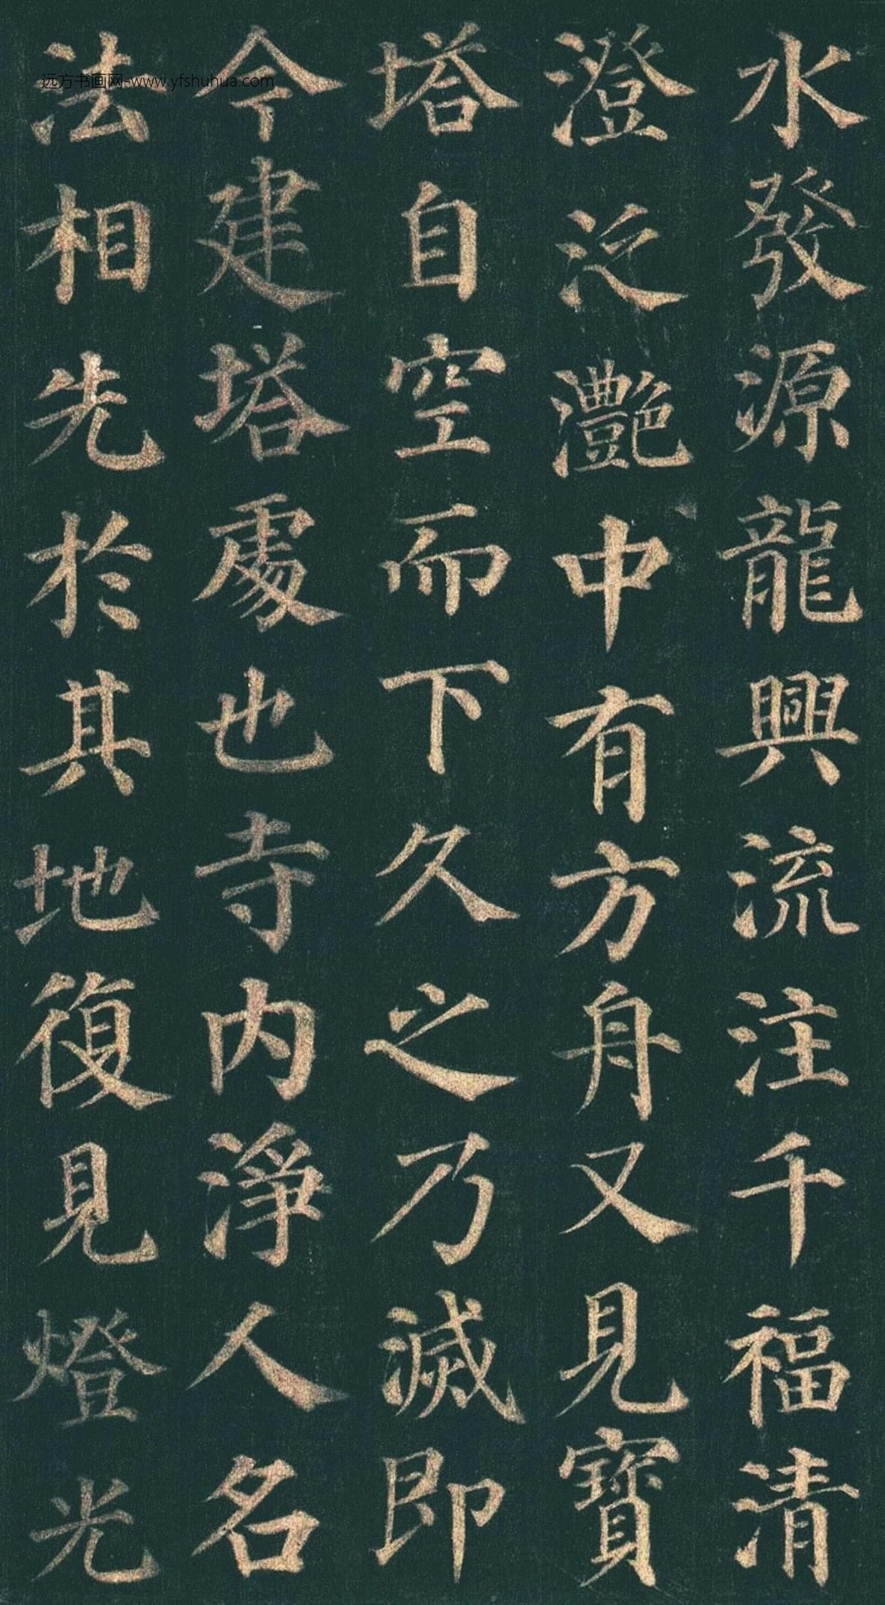 水發源龍興流注千福清
澄泛灧中有方舟又見寶
塔自空而下久之乃滅即
今建塔處也寺内淨人名
法相先於其地復見燈光
远方书画网-www.yfshuhua.com